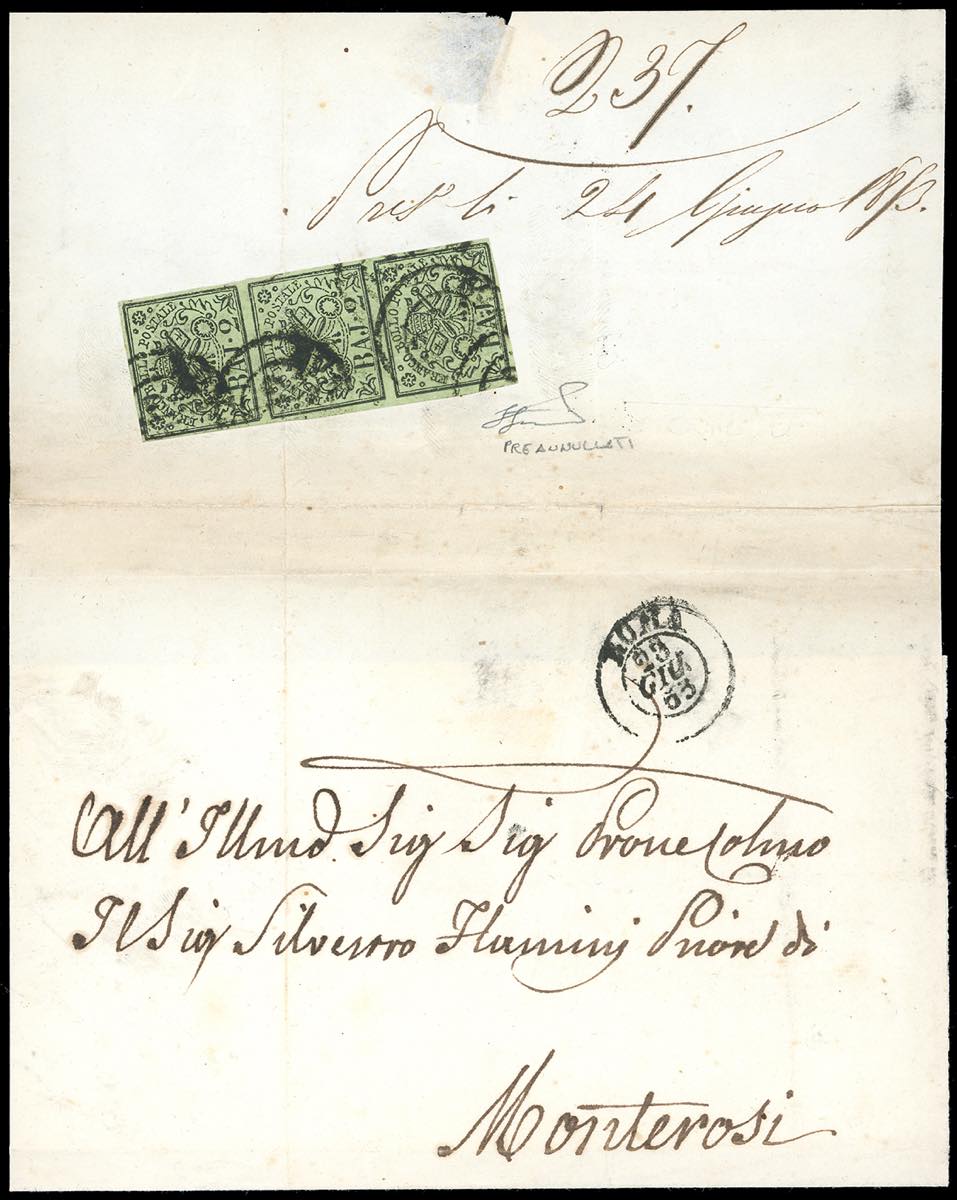 237.
Pres.ta li 24 Giugno 1853.
FRANCO BOLLO POSTALE
BAJ. 2
FRANCO BOLLO POSTALE
BAJ. 2
FRANCO BOLLO POSTALE
BAJ.
PREANNULLATI
ROMA
23
GIU
53
All' Illmo Sig Sig Prone Colmo
Il Sig Silvestro Flaminj Priore di
Monterosi